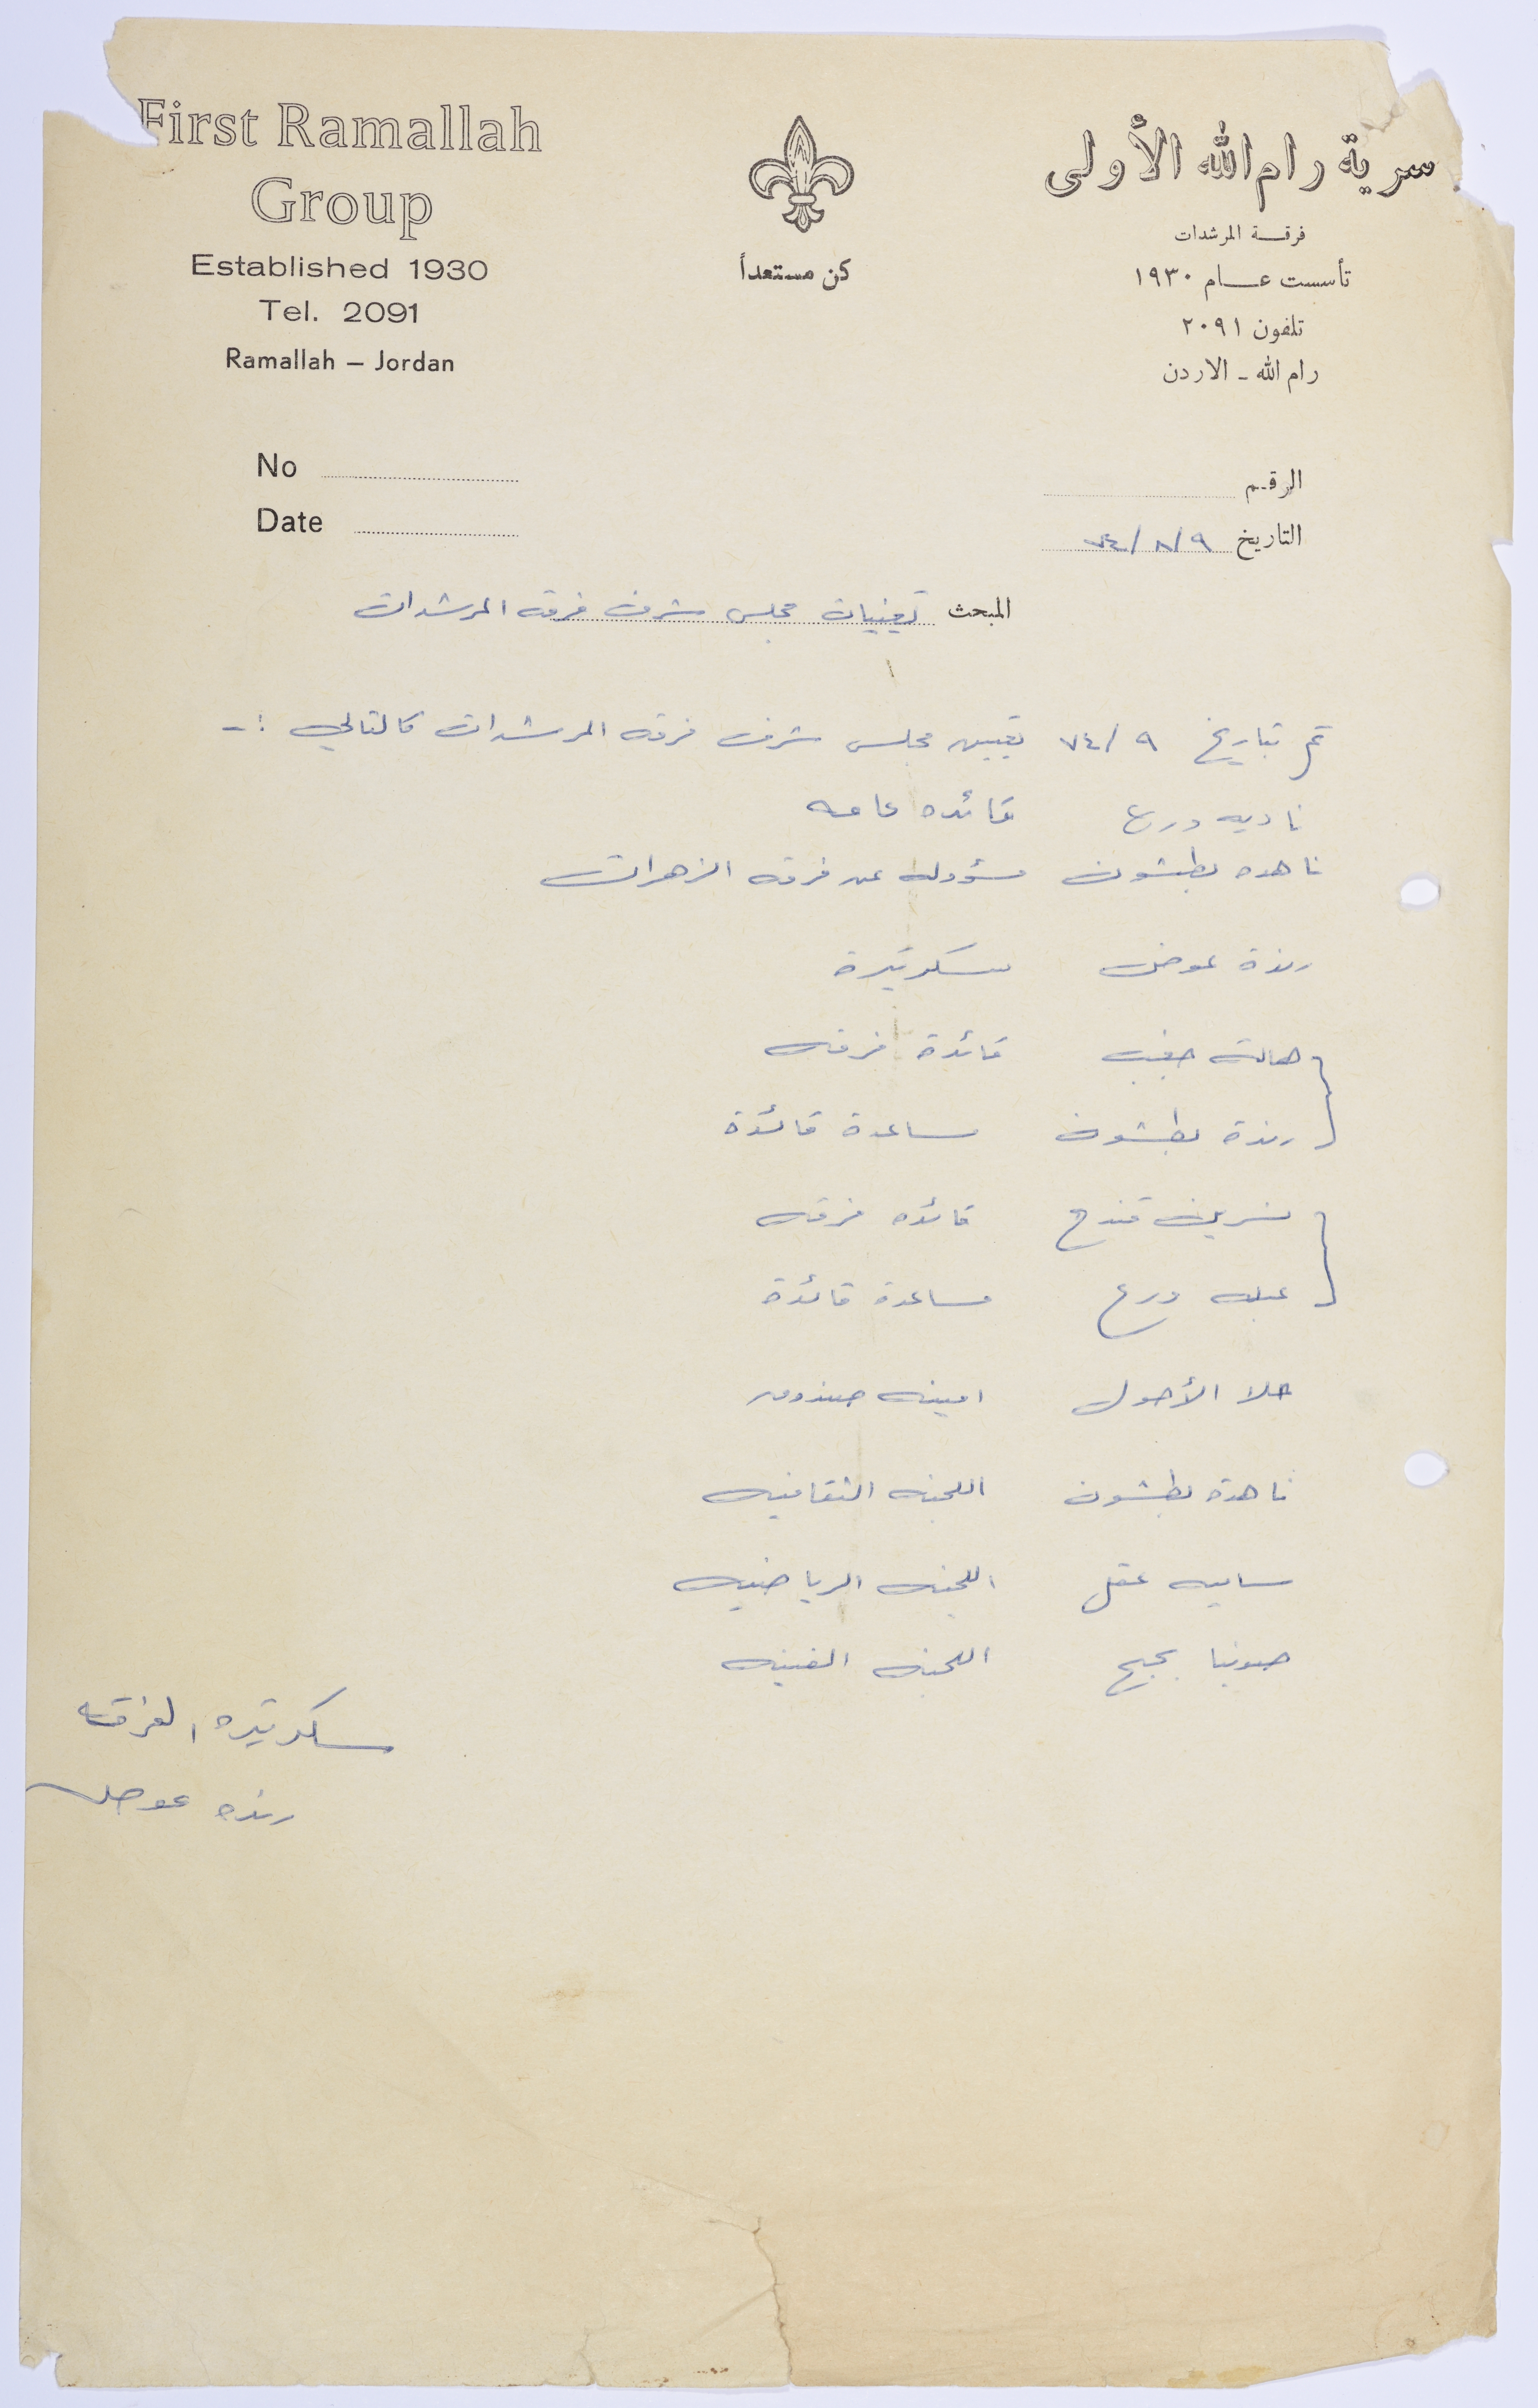 First Ramallah
Group
Established 1930
Tel. 2091
Ramallah – Jordan
كن مستعداً
سرية رام الله الأولى
فرقة المرشدات
تأسست عام ١٩٣٠
تلفون ٢٠٩١
رام الله - الاردن
No
Date
الرقم
التاريخ ٧٤/٨/٩
المبحث تعيينات مجلس شرف فرقه المرشدات
تم بتاريخ ٧٤/٩ تعيين مجلس شرف فرقه المرشدات كالتالي :-
ناديه درع قائده عامه
ناهده بطشون مسؤوله عن فرقه الزهرات
رندة عوض سكرتيرة
هالة قائدة فرقه
رندة بطشون مساعدة قائدة
نسرين قندح قائده فرقه
عبله درع مساعدة قائدة
حلا الأحول امينه صندوق
ناهدة بطشون اللجنه الثقافيه
ساميه عقل اللجنه الرياضيه
صونيا بجبج اللجنه الفنيه
سكرتيره الفرقه
رنده عوض